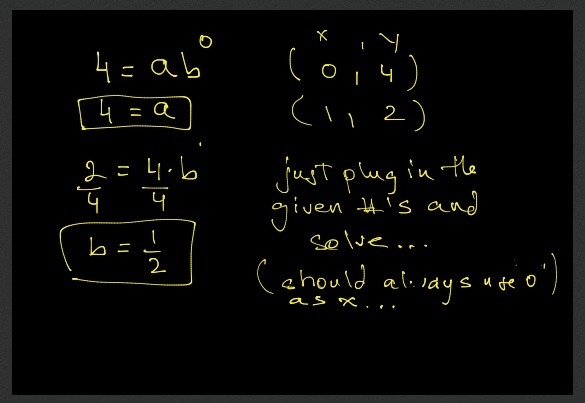 4 = ab⁰
4 = a
2/4 = 4·b¹/4
b = 1/2
x , y
(0, 4)
(1, 2)
just plug in the
given #'s and
solve...
(should always use 0)
as x...